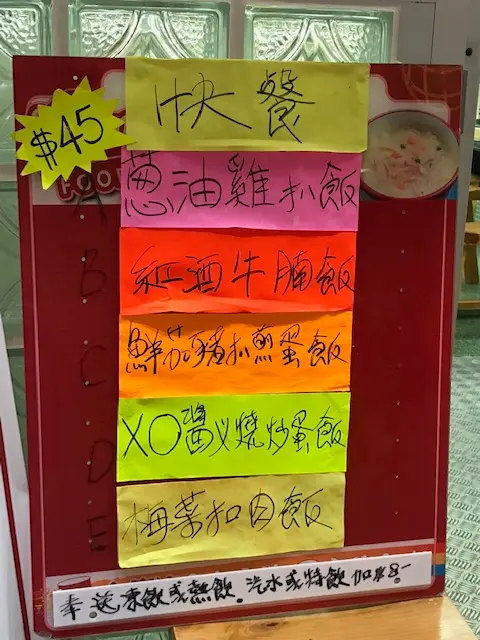 $45
快餐
FOO
A 葱油雞扒飯
B 紅酒牛腩飯
C 鮮茄豬扒煎蛋飯
D XO醬叉燒炒蛋飯
E 梅菜扣肉飯
奉送凍飲或熱飲.汽水或特飲加$8-